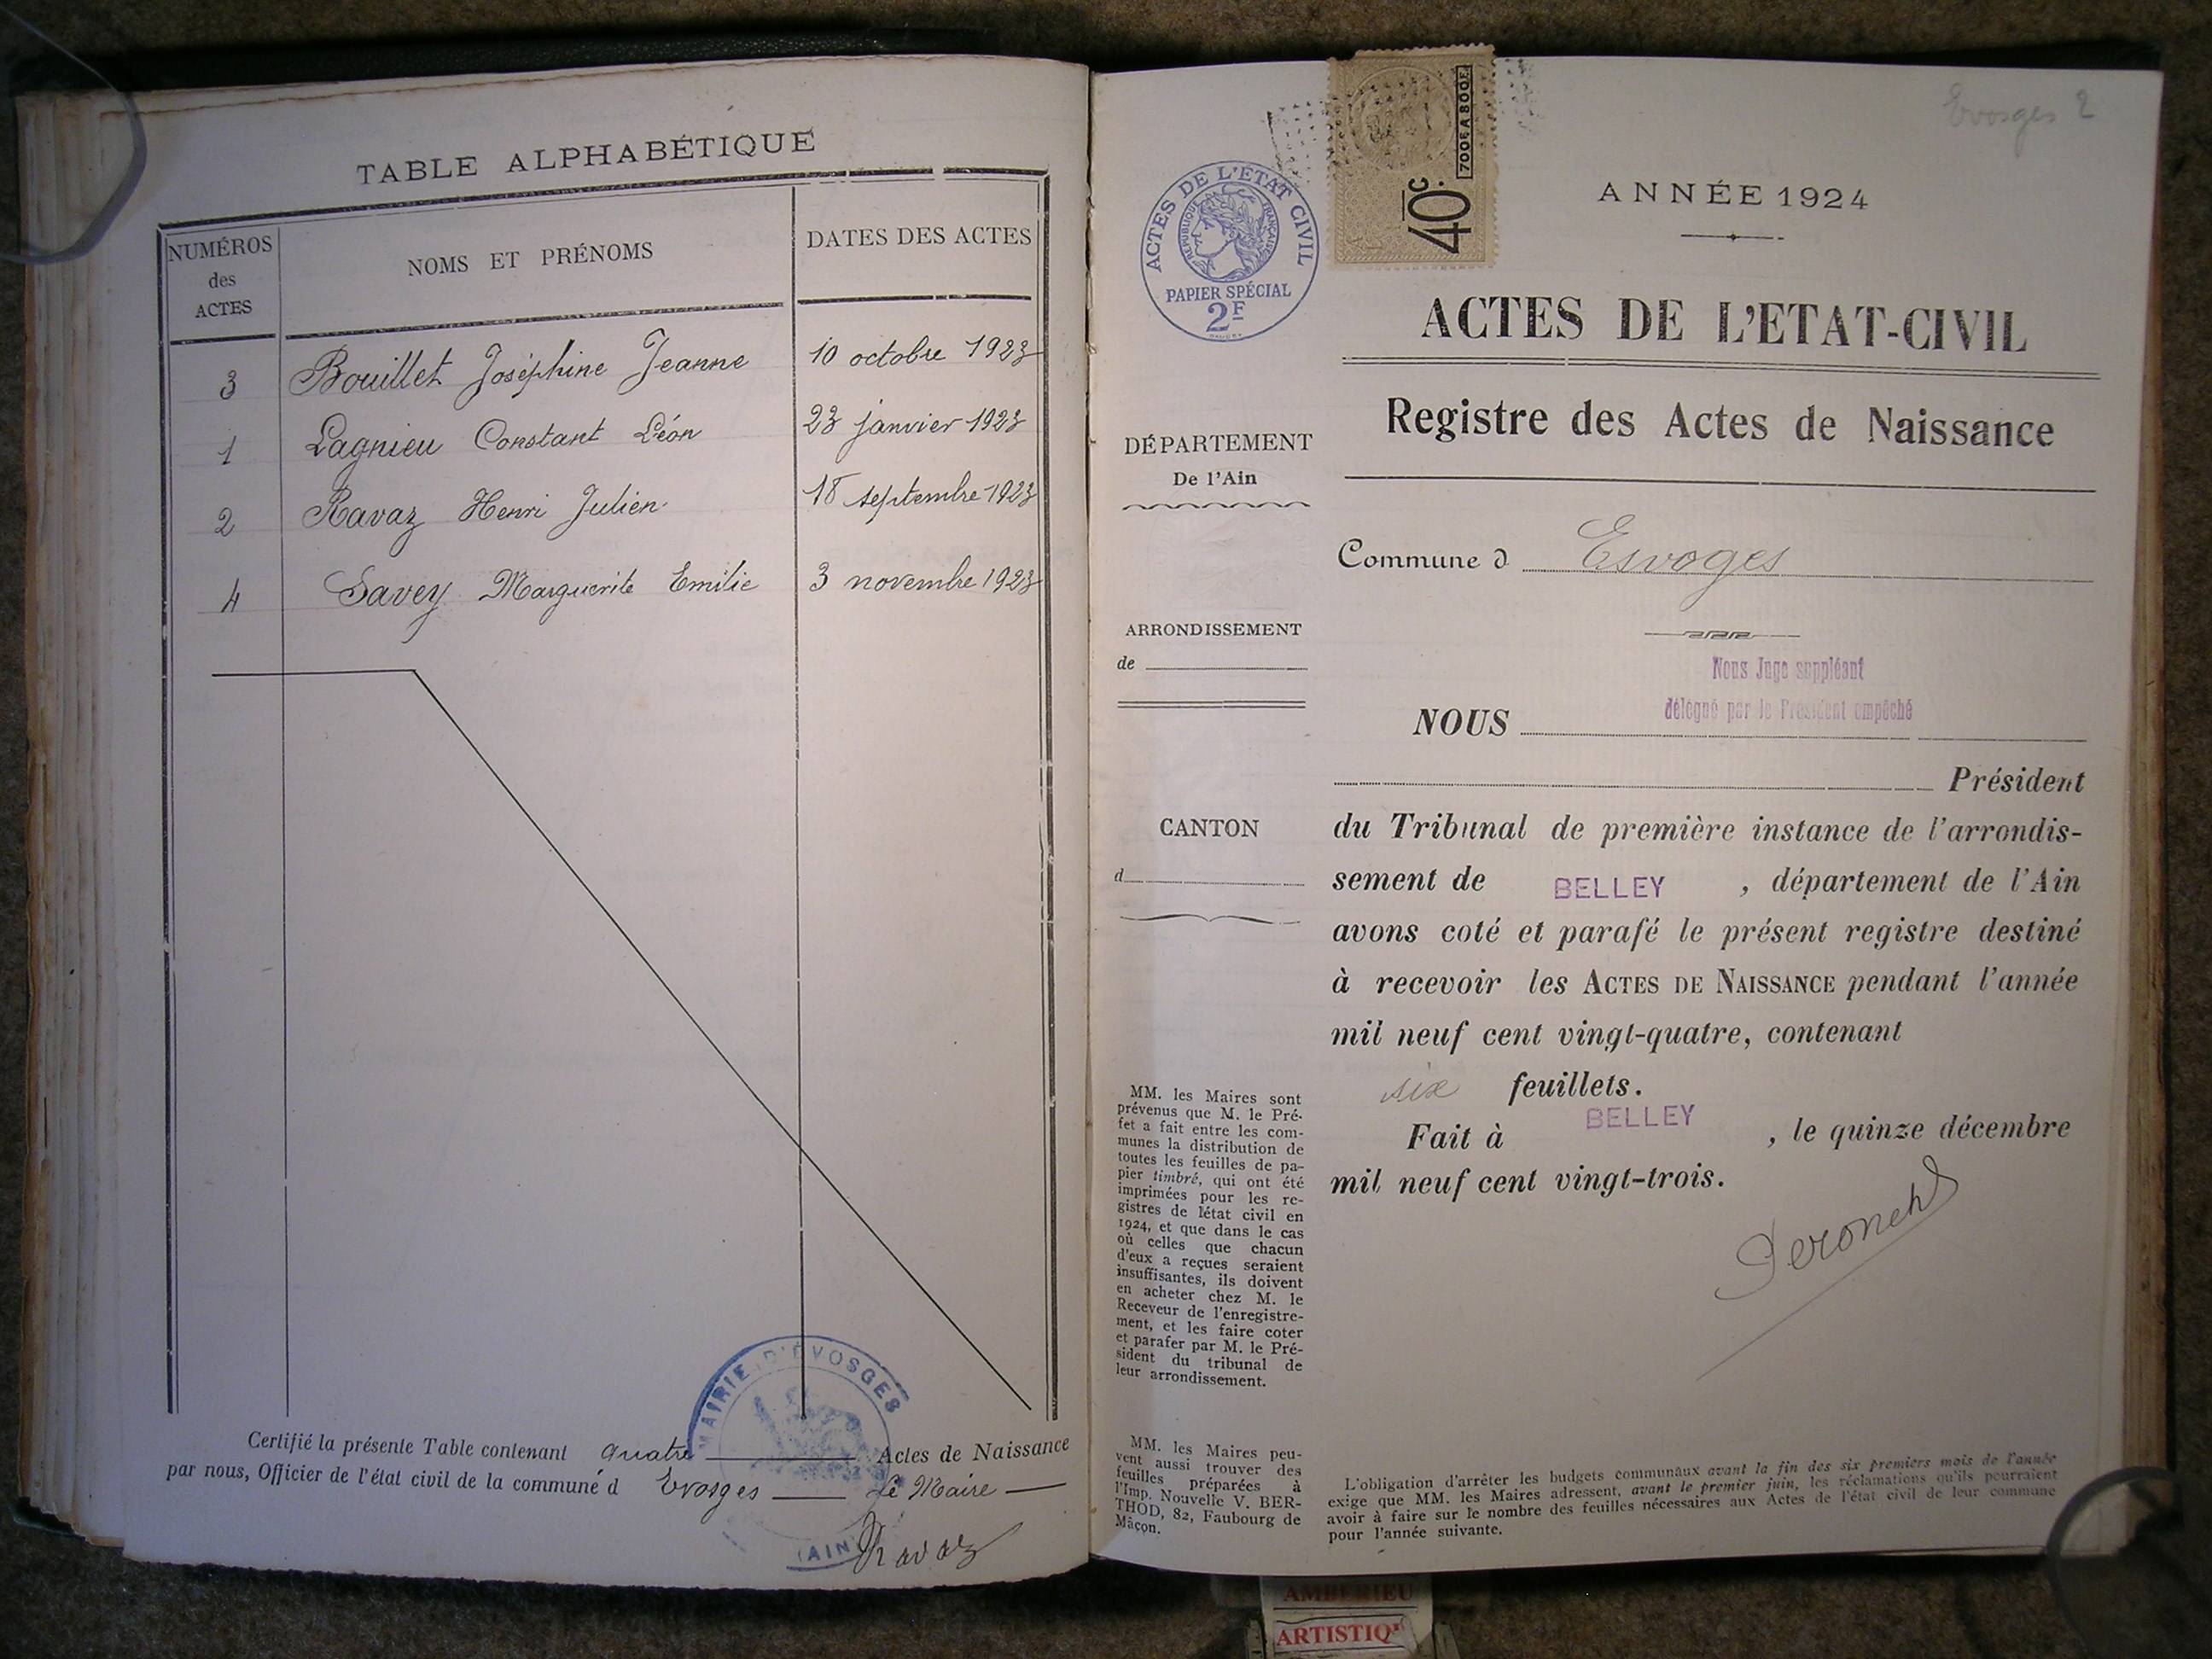 TABLE ALPHABÉTIQUE
NUMÉROS des ACTES
NOMS ET PRÉNOMS
DATES DES ACTES
3 Bouillet Joséphine Jeanne 10 octobre 1923
1 Lagnieu Constant Léon 23 janvier 1923
2 Ravaz Henri Julien 18 septembre 1923
4 Savey Marguerite Emilie 3 novembre 1923
Certifié la présente Table contenant quatre Actes de Naissance
par nous, Officier de l'état civil de la commune d Evosges Le Maire
MAIRIE D'ÉVOSGES
(AIN)
Ravaz
Evosges 2
ACTES DE L'ETAT CIVIL
RÉPUBLIQUE FRANÇAISE
PAPIER SPÉCIAL
2F
40c.
700F A 800F
ANNÉE 1924
ACTES DE L'ETAT-CIVIL
Registre des Actes de Naissance
DÉPARTEMENT
De l'Ain
Commune d Esvoges
ARRONDISSEMENT
de
Nous Juge suppléant
délégué par le Président empêché
NOUS
Président
CANTON
d
du Tribunal de première instance de l'arrondis-
sement de BELLEY, département de l'Ain
avons coté et parafé le présent registre destiné
à recevoir les ACTES DE NAISSANCE pendant l'année
mil neuf cent vingt-quatre, contenant
six feuillets.
Fait à BELLEY, le quinze décembre
mil neuf cent vingt-trois.
MM. les Maires sont
prévenus que M. le Pré-
fet a fait entre les com-
munes la distribution de
toutes les feuilles de pa-
pier timbré, qui ont été
imprimées pour les re-
gistres de l'état civil en
1924, et que dans le cas
où celles que chacun
d'eux a reçues seraient
insuffisantes, ils doivent
en acheter chez M. le
Receveur de l'enregistre-
ment, et les faire coter
et parafer par M. le Pré-
sident du tribunal de
leur arrondissement.
MM. les Maires peu-
vent aussi trouver des
feuilles préparées à
l'Imp. Nouvelle V. BER-
THOD, 82, Faubourg de
Mâcon.
L'obligation d'arrêter les budgets communaux avant la fin des six premiers mois de l'année
exige que MM. les Maires adressent, avant le premier juin, les réclamations qu'ils pourraient
avoir à faire sur le nombre des feuilles nécessaires aux Actes de l'état civil de leur commune
pour l'année suivante.
AMBERIEU
ARTISTIQ